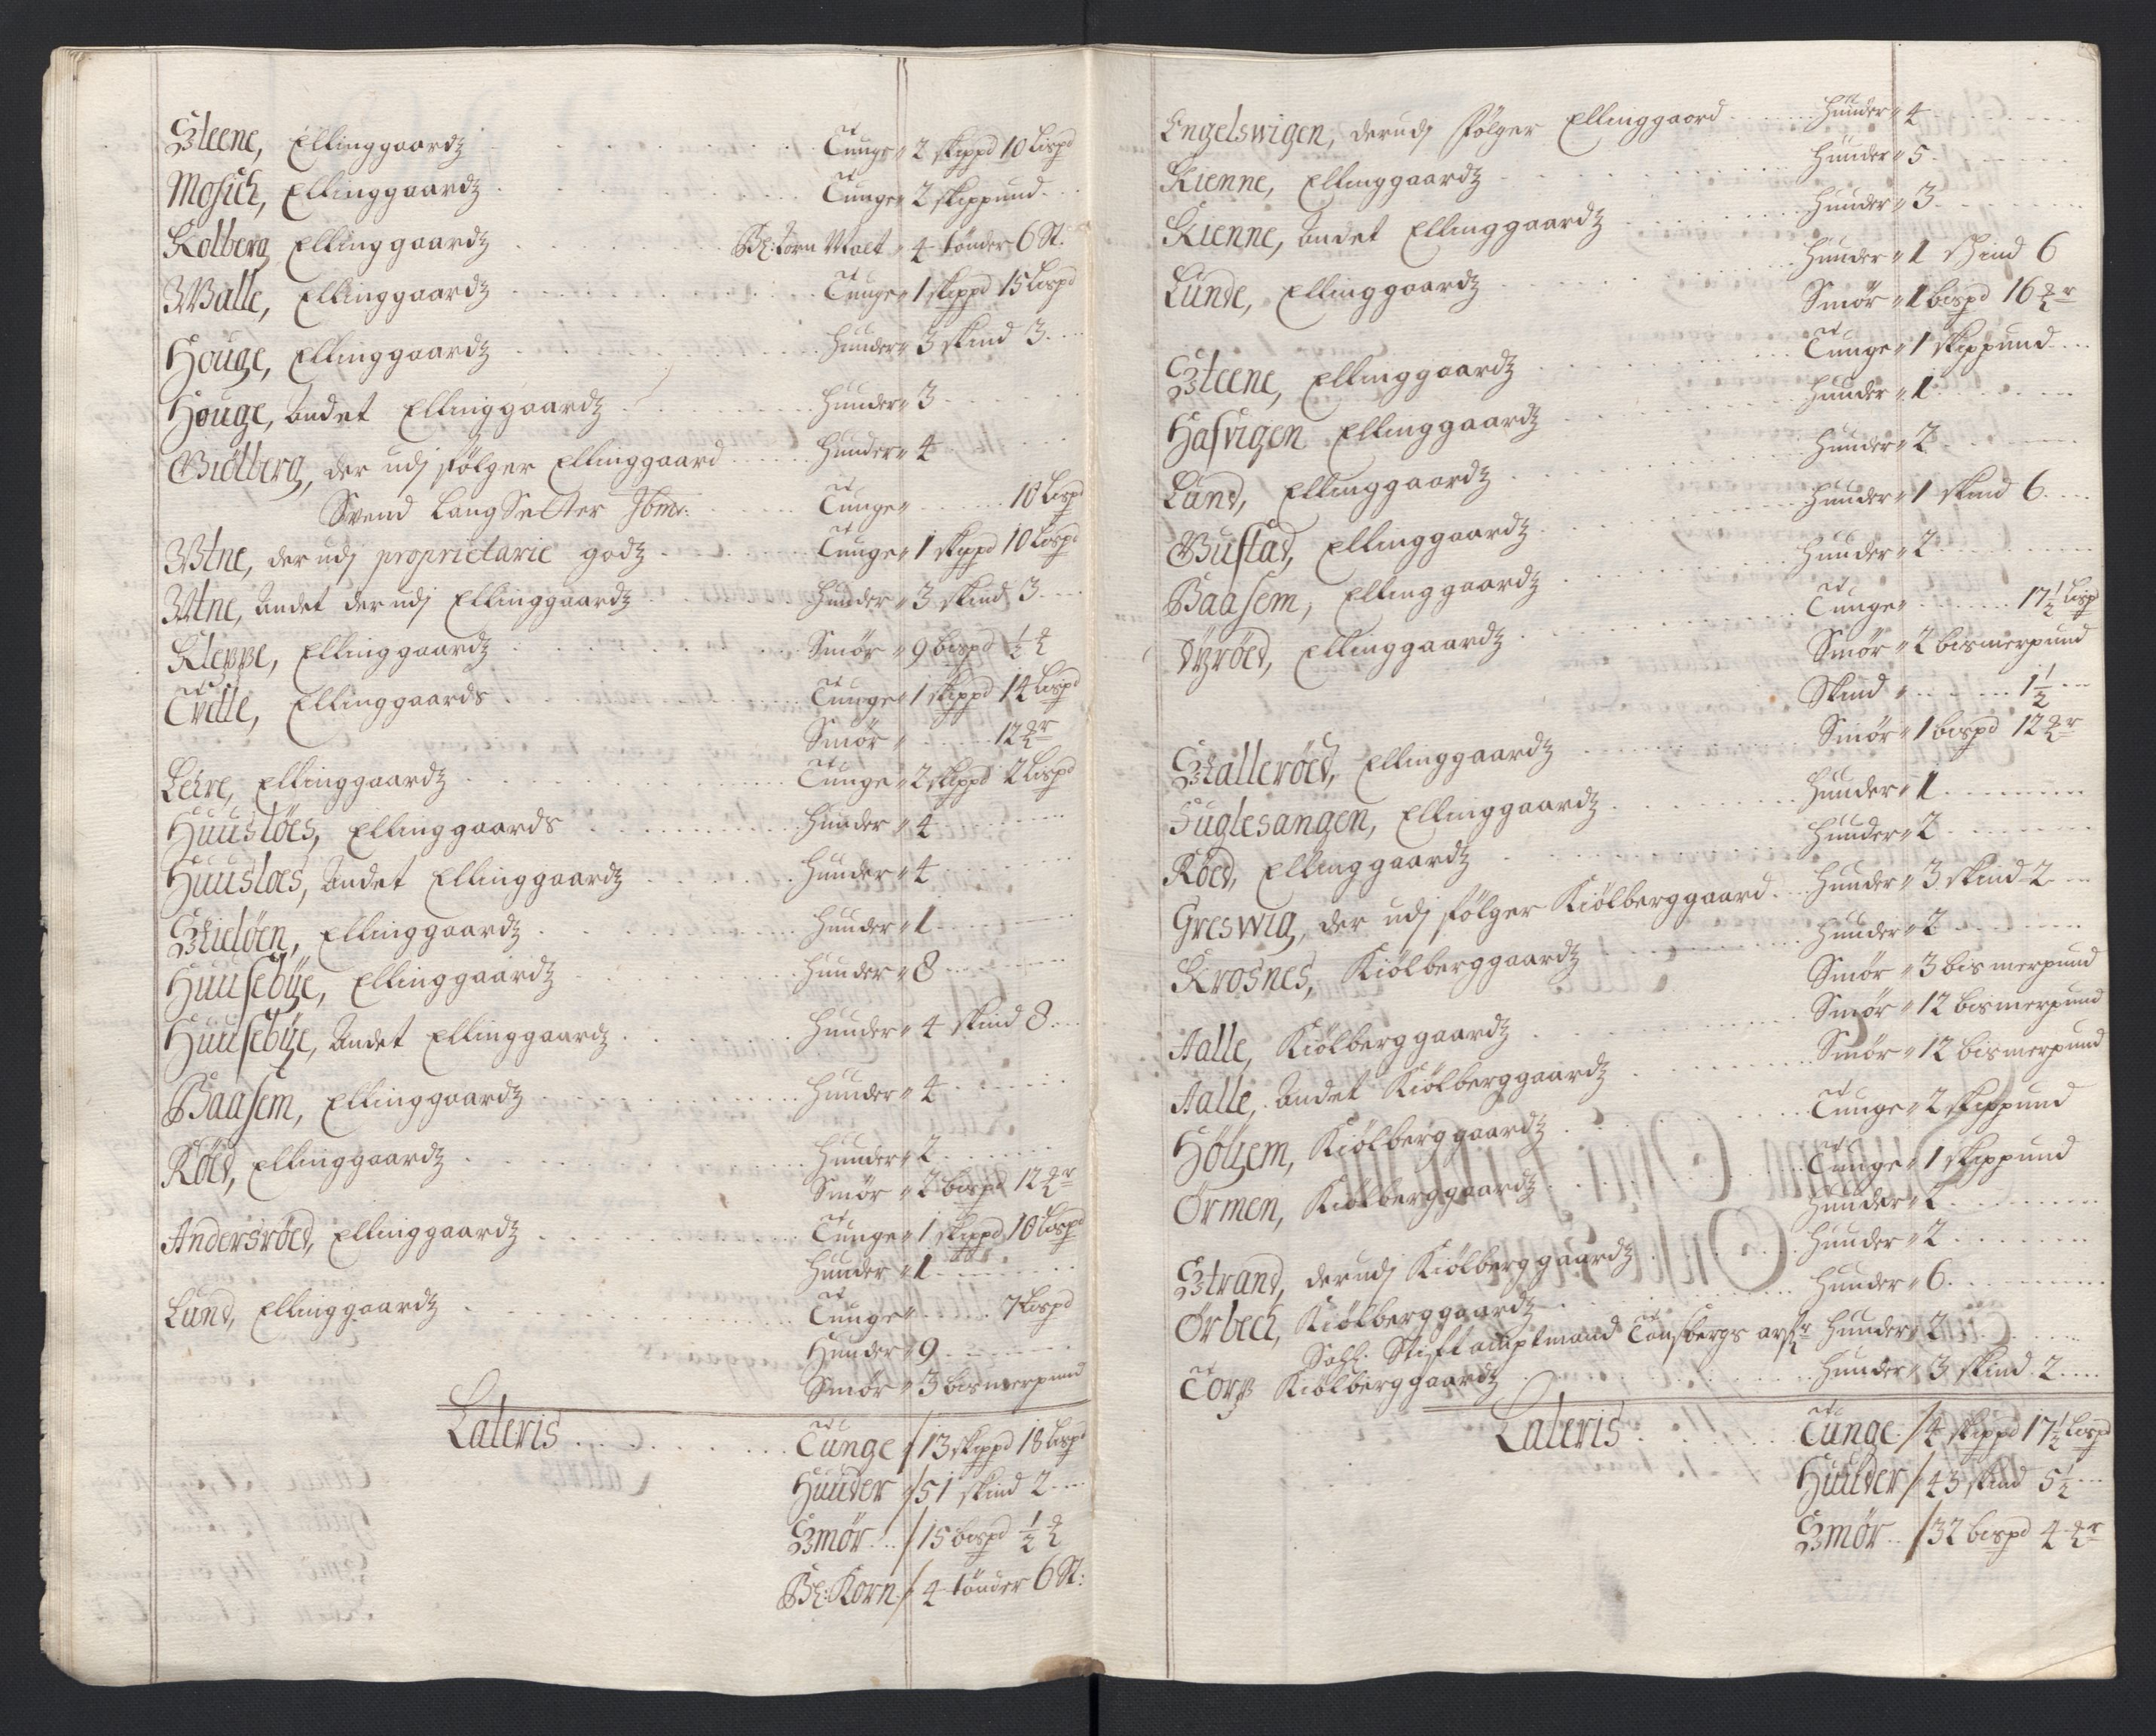 Steene, Ellinggaardz Tunge 2 skippd 10 Lispd
Mosich, Ellinggaardz Tunge 2 skippund
Kolberg Ellinggaardz Bl: Korn Malt 4 tønder 6 St:
Walle, Ellinggaardz Tunge 1 skippd 15 Lispd
Houge, Ellinggaardz Huuder 3 skind 3
Houge, Andet Ellinggaardz Huuder 3
Giølberg, der udj følger Ellinggaard Huuder 4
Svend LangSetter Tunge 10 Lispd
Utne, der udj proprietarie godz Tunge 1 skippd 10 Lispd
Utne, Andet der udj Ellinggaardz Huuder 3 skind 3
Kleppe, Ellinggaardz Smør 9 bispd ½ ℔
Tvitte, Ellinggaards Tunge 1 skippd 14 Lispd
Smør 12 ℔r
Lehre, Ellinggaardz Tunge 2 skippd 2 Lispd
Huusløes, Ellinggaards Huuder 4
Huusloes, Andet Ellinggaardz Huuder 4
Skieløen, Ellinggaardz Huuder 1
Huusebÿe, Ellinggaardz Huuder 8
Huusebÿe, Andet Ellinggaardz Huuder 4 skind 8
Baasem, Ellinggaardz Huuder 4
Röed, Ellinggaardz Huuder 2
Smør 2 bispd 12 ℔r
Andersröed, Ellinggaardz Tunge 1 skippd 10 Lispd
Huuder 1
Lund, Ellinggaardz Tunge 7 Lispd
Huuder 9
Smør 3 bismerpund
Lateris Tunge / 13 skippd 18 Lispd
Huuder / 51 skind 2
Smør / 15 bispd ½ ℔
Bl: Korn / 4 tønder 6 St:
Engelswigen, der udj følger Ellinggaard Huuder 4
Kienne, Ellinggaardz Huuder 5
Kienne, Andet Ellinggaardz Huuder 3
Lunde, Ellinggaardz Huuder 1 skind 6
Smør 1 bispd 16 ℔r
Steene, Ellinggaardz Tunge 1 skippund
Hasvigen Ellinggaardz Huuder 1
Lund, Ellinggaardz Huuder 2
Bustad, Ellinggaardz Huuder 1 skind 6
Baasem, Ellinggaardz Huuder 2
Dÿröed, Ellinggaardz Tunge 17½ Lispd
Smør 2 bismerpund
Skind 1½
Skalleröed, Ellinggaardz Smør 1 bispd 12 ℔r
Fuglesangen, Ellinggaardz Huuder 1
Röed, Ellinggaardz Huuder 2
Greswig, der udj følger Kiølberggaard Huuder 3 skind 2
Krosnes, Kiølberggaardz Huuder 2
Smør 3 bismerpund
Aalle, Kiølberggaardz Smør 12 bismerpund
Aalle, Andet Kiølberggaardz Smør 12 bismerpund
Hölÿem, Kiølberggaardz Tunge 2 skippund
Ørmen, Kiølberggaardz Tunge 1 skippund
Huuder 2
Strand, der udj Kiølberggaardz Huuder 2
Ørbech, Kiølberggaardz Huuder 6
Sahl. Stiftamptmand Tonsbergs arfr Huuder 2
Torp Kiølberggaardz Huuder 3 skind 2
Lateris Tunge / 4 skippd 17½ Lispd
Huuder / 43 skind 5½
Smør / 32 bispd 4 ℔r